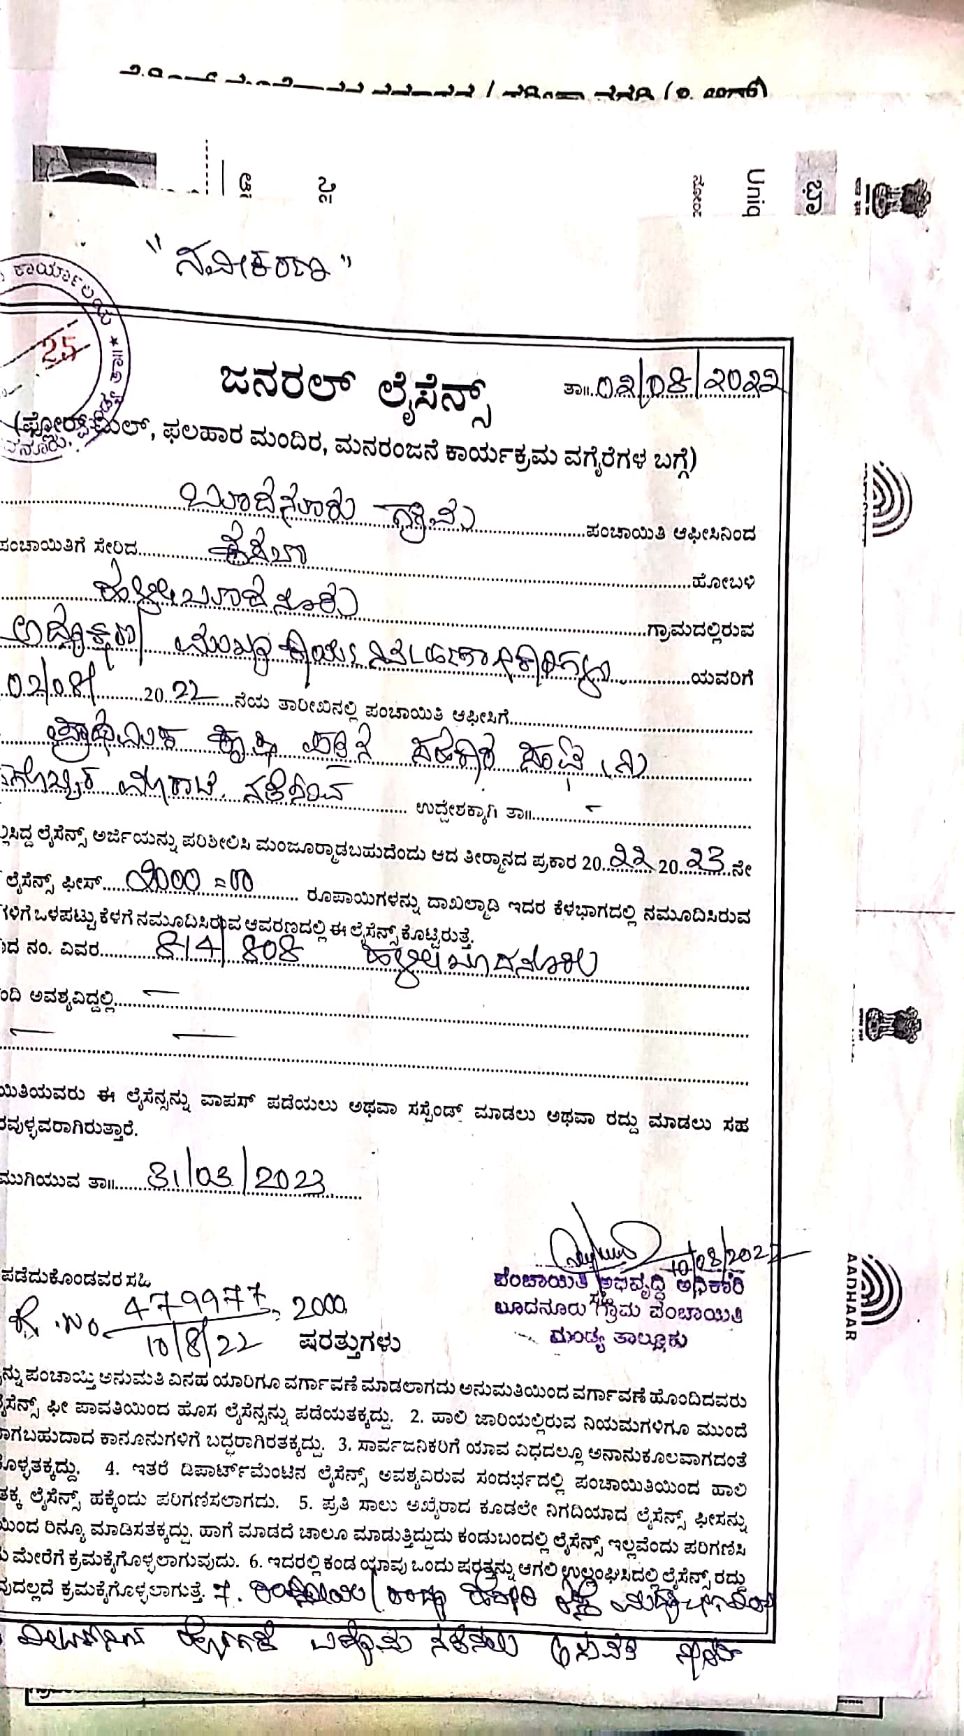 Uniq
ಭಾ
" ನವೀಕರಣ "
ಕಾರ್ಯಾಲಯ
25
ಜನರಲ್ ಲೈಸೆನ್ಸ್ ತಾ॥..02/08/2022
(ಫ್ಲೋರ್ ಮಿಲ್, ಫಲಹಾರ ಮಂದಿರ, ಮನರಂಜನೆ ಕಾರ್ಯಕ್ರಮ ವಗೈರೆಗಳ ಬಗ್ಗೆ)
ಬೂದನೂರು ಗ್ರಾಮ ಪಂಚಾಯಿತಿ ಆಫೀಸಿನಿಂದ
ಪಂಚಾಯಿತಿಗೆ ಸೇರಿದ ಕಸಬಾ ಹೋಬಳಿ
ಹಳೇಬೂದನೂರು ಗ್ರಾಮದಲ್ಲಿರುವ
ಅಧ್ಯಕ್ಷರು/ ಮುಖ್ಯ ಕಾರ್ಯ ನಿರ್ವಹಣಾಧಿಕಾರಿಗಳು ಯವರಿಗೆ
02/08/ 2022 ನೆಯ ತಾರೀಖಿನಲ್ಲಿ ಪಂಚಾಯಿತಿ ಆಫೀಸಿಗೆ
ಪ್ರಾಥಮಿಕ ಕೃಷಿ ಪತ್ತಿನ ಸಹಕಾರ ಸಂಘ (ನಿ
ಮಾರಾಟ ನಡೆಸುವ ಉದ್ದೇಶಕ್ಕಾಗಿ ತಾ॥ –
ಲ್ಲಿಸಿದ್ದ ಲೈಸೆನ್ಸ್ ಅರ್ಜಿಯನ್ನು ಪರಿಶೀಲಿಸಿ ಮಂಜೂರ್ಮಾಡಬಹುದೆಂದು ಆದ ತೀರ್ಮಾನದ ಪ್ರಕಾರ 2022 2023 ನೇ
ಲೈಸೆನ್ಸ್ ಫೀಸ್ 2000=00 ರೂಪಾಯಿಗಳನ್ನು ದಾಖಲ್ಮಾಡಿ ಇದರ ಕೆಳಭಾಗದಲ್ಲಿ ನಮೂದಿಸಿರುವ
ಗಳಿಗೆ ಒಳಪಟ್ಟು ಕೆಳಗೆ ನಮೂದಿಸಿರುವ ಆವರಣದಲ್ಲಿ ಈ ಲೈಸೆನ್ಸ್ ಕೊಟ್ಟಿರುತ್ತೆ.
ದ ನಂ. ವಿವರ 814/808 ಹಳೇಬೂದನೂರು
ಂದಿ ಅವಶ್ಯವಿದ್ದಲ್ಲಿ –
ಯಿತಿಯವರು ಈ ಲೈಸೆನ್ಸನ್ನು ವಾಪಸ್ ಪಡೆಯಲು ಅಥವಾ ಸಸ್ಪೆಂಡ್ ಮಾಡಲು ಅಥವಾ ರದ್ದು ಮಾಡಲು ಸಹ
ರವುಳ್ಳವರಾಗಿರುತ್ತಾರೆ.
ಮುಗಿಯುವ ತಾ॥ 31/03/2023
10/08/2022
ಪಂಚಾಯಿತಿ ಅಭಿವೃದ್ಧಿ ಅಧಿಕಾರಿ
ಬೂದನೂರು ಗ್ರಾಮ ಪಂಚಾಯಿತಿ
ಮಂಡ್ಯ ತಾಲ್ಲೂಕು
ಪಡೆದುಕೊಂಡವರ ಸಹಿ
R.No 479977 = 2000
10/8/22
ಷರತ್ತುಗಳು
ನ್ನು ಪಂಚಾಯ್ತಿ ಅನುಮತಿ ವಿನಹ ಯಾರಿಗೂ ವರ್ಗಾವಣೆ ಮಾಡಲಾಗದು ಅನುಮತಿಯಿಂದ ವರ್ಗಾವಣೆ ಹೊಂದಿದವರು
ಲೈಸೆನ್ಸ್ ಫೀ ಪಾವತಿಯಿಂದ ಹೊಸ ಲೈಸೆನ್ಸನ್ನು ಪಡೆಯತಕ್ಕದ್ದು. 2. ಹಾಲಿ ಜಾರಿಯಲ್ಲಿರುವ ನಿಯಮಗಳಿಗೂ ಮುಂದೆ
ಾಗಬಹುದಾದ ಕಾನೂನುಗಳಿಗೆ ಬದ್ಧರಾಗಿರತಕ್ಕದ್ದು. 3. ಸಾರ್ವಜನಿಕರಿಗೆ ಯಾವ ವಿಧದಲ್ಲೂ ಅನಾನುಕೂಲವಾಗದಂತೆ
ಕೊಳ್ಳತಕ್ಕದ್ದು. 4. ಇತರೆ ಡಿಪಾರ್ಟ್‌ಮೆಂಟಿನ ಲೈಸೆನ್ಸ್ ಅವಶ್ಯವಿರುವ ಸಂದರ್ಭದಲ್ಲಿ ಪಂಚಾಯಿತಿಯಿಂದ ಹಾಲಿ
ತಕ್ಕ ಲೈಸೆನ್ಸ್ ಹಕ್ಕೆಂದು ಪರಿಗಣಿಸಲಾಗದು. 5. ಪ್ರತಿ ಸಾಲು ಅಖೈರಾದ ಕೂಡಲೇ ನಿಗದಿಯಾದ ಲೈಸೆನ್ಸ್ ಫೀಸನ್ನು
ಯಿಂದ ರಿನ್ಯೂ ಮಾಡಿಸತಕ್ಕದ್ದು. ಹಾಗೆ ಮಾಡದೆ ಚಾಲೂ ಮಾಡುತ್ತಿದ್ದುದು ಕಂಡುಬಂದಲ್ಲಿ ಲೈಸೆನ್ಸ್ ಇಲ್ಲವೆಂದು ಪರಿಗಣಿಸಿ
ಮೇರೆಗೆ ಕ್ರಮಕೈಗೊಳ್ಳಲಾಗುವುದು. 6. ಇದರಲ್ಲಿ ಕಂಡ ಯಾವು ಒಂದು ಷರತ್ತನ್ನು ಆಗಲಿ ಉಲ್ಲಂಘಿಸಿದಲ್ಲಿ ಲೈಸೆನ್ಸ್ ರದ್ದು
ವುದಲ್ಲದೆ ಕ್ರಮಕೈಗೊಳ್ಳಲಾಗುತ್ತೆ. 7.
AADHAAR